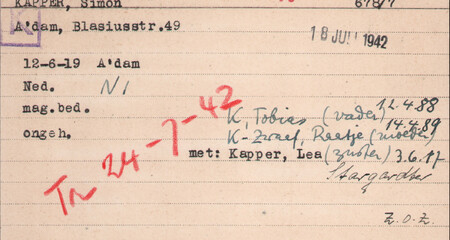 KAPPER, Simon 678/7
A'dam, Blasiusstr.49
18 JULI 1942
12-6-19 A'dam
Ned. NI
mag.bed.
ongeh.
Tr 24-7-42
K, Tobias (vader) 12.4.88
K-Zwaaf, Raatje (moeder) 14.4.89
met: Kapper, Lea (zuster) 3.6.17
Stargardter
Z.O.Z.